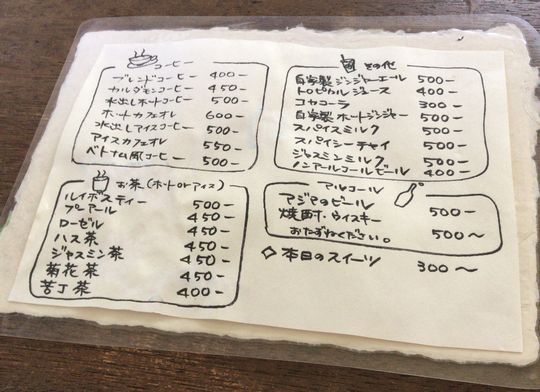 コーヒー
ブレンドコーヒー 400-
カルダモンコーヒー 450-
水出しホットコーヒー 500-
ホットカフェオレ 600-
水出しアイスコーヒー 500-
アイスカフェオレ 550-
ベトナム風コーヒー 500-
お茶(ホットorアイス)
ルイボスティー 500-
プーアール 450-
ローゼル 450-
ハス茶 450-
ジャスミン茶 450-
菊花茶 450-
苦丁茶 400-
その他
自家製ジンジャーエール 500-
トロピカルジュース 400-
コカコーラ 300-
自家製ホートジンジャー 500-
スパイスミルク 500-
スパイシーチャイ 500-
ジャスミンミルク 500-
ノンアールコールビール 400-
アルコール
アジアのビール 500-
焼酎・ウイスキー
おたずねください。 500〜
◇本日のスイーツ 300〜